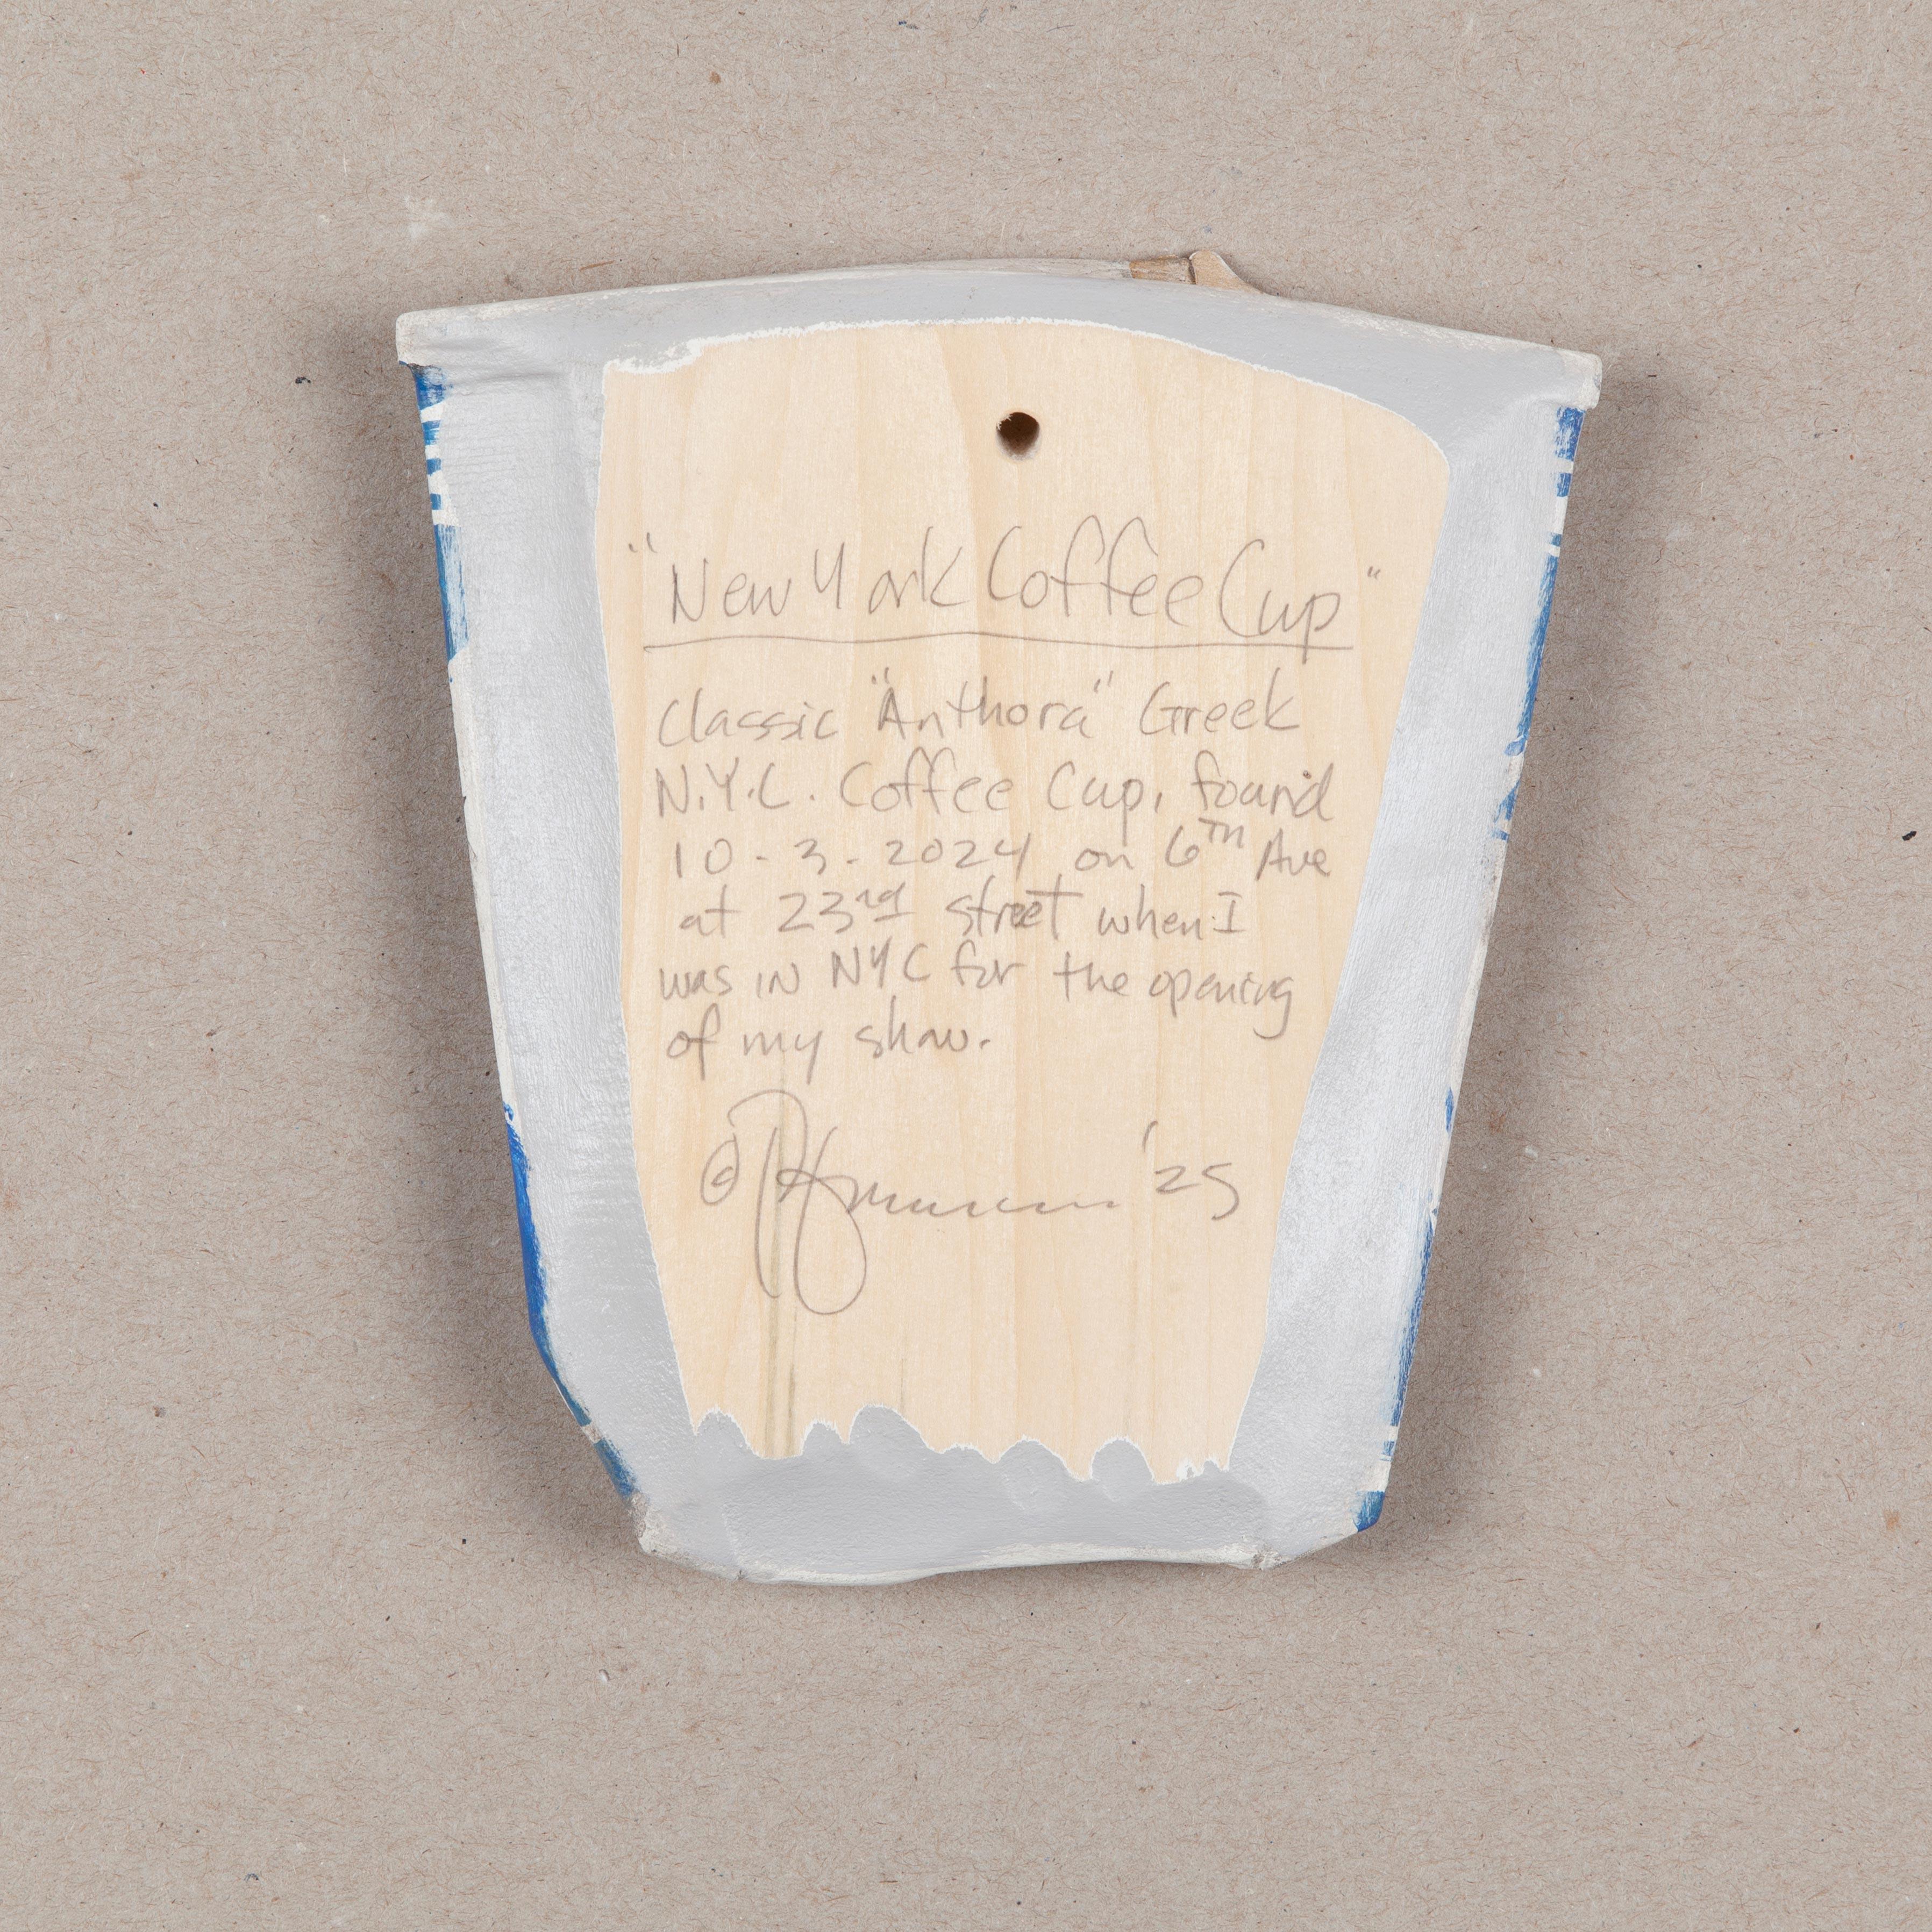 "New York Coffee Cup"
Classic "Anthora" Greek
N.Y.C. Coffee Cup, found
10-3-2024 on 6TH Ave
at 23rd street when I
was in NYC for the opening
of my show.
© '25